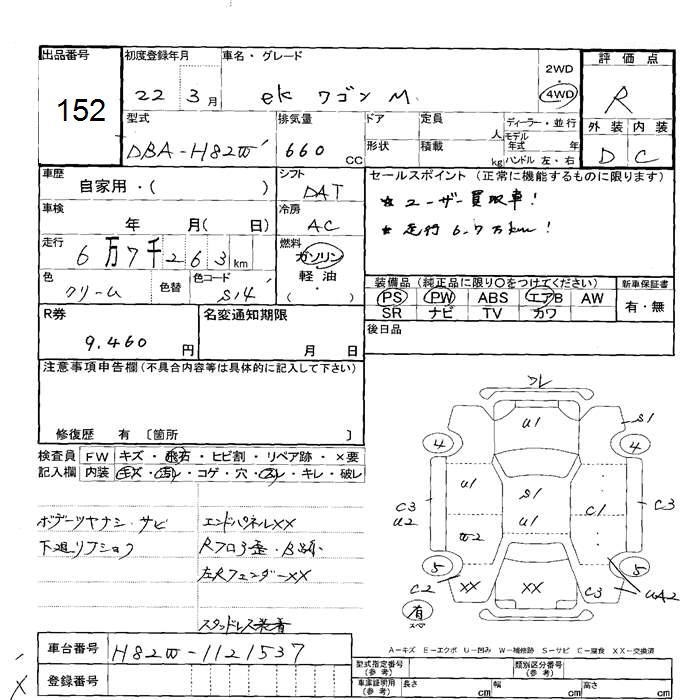 出品番号 152
初度登録年月 22 3月
車名・グレード ekワゴン M
2WD・4WD
評価点 R
外装 D 内装 C
型式 DBA-H82W
排気量 660 CC
ドア 形状
定員 人
積載 kg
ディーラー・並行
モデル年式 年
ハンドル 左・右
車歴 自家用・( )
シフト DAT
セールスポイント (正常に機能するものに限ります)
★ユーザー買取車!
★走行6.7万km!
車検 年 月( 日)
冷房 AC
走行 6万7千263km
燃料 ガソリン 軽油
色 クリーム 色替
色コード S14
装備品 (純正品に限り○をつけてください)
PS PW ABS エアB AW
SR ナビ TV カワ
新車保証書 有・無
R券 9,460円
名変通知期限 月 日
後日品
注意事項申告欄 (不具合内容等は具体的に記入して下さい)
修復歴 有 〔箇所 〕
検査員記入欄
FW キズ・飛石・ヒビ割・リペア跡・×要
内装 キズ・汚れ・コゲ・穴・スレ・キレ・破レ
ボデーツヤナシ・サビ
エンドパネルXX
下廻リ
左Rフェンダー XX
スタッドレス装着
フレ
U1
S1
4
4
U1
S1
U1
C3
U2
C1
C3
W2
5
5
C2
XX
XX
C3
UA2
有
スペア
A-キズ E-エクボ U-凹み W-補修跡 S-サビ C-腐食 XX-交換済
車台番号 H82W-1121537
登録番号
型式指定番号 (参考)
類別区分番号 (参考)
車庫証明用 (参考) 長さ cm 幅 cm 高さ cm